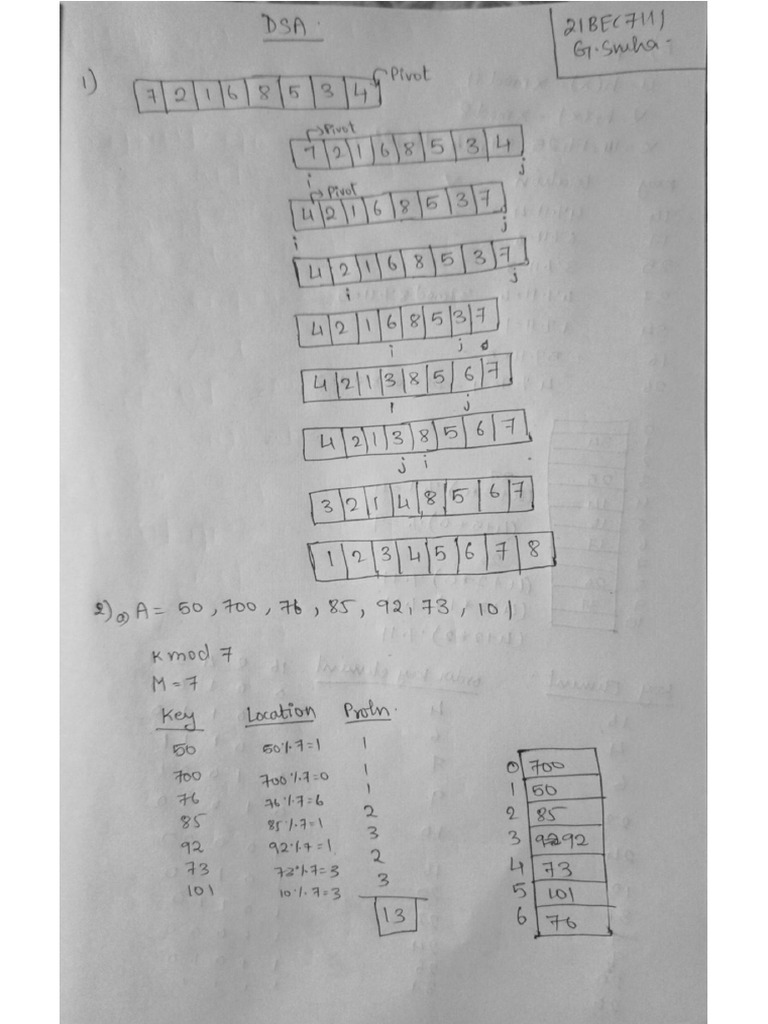 DSA.
21BEC7111
G. Sneha.
1)
7 2 1 6 8 5 3 4 Pivot
Pivot
7 2 1 6 8 5 3 4
i j
Pivot
4 2 1 6 8 5 3 7
i j
4 2 1 6 8 5 3 7
i j
4 2 1 6 8 5 3 7
i j
4 2 1 3 8 5 6 7
i j
4 2 1 3 8 5 6 7
j i
3 2 1 4 8 5 6 7
1 2 3 4 5 6 7 8
2) a) A = 50, 700, 76, 85, 92, 73, 101
K mod 7
M = 7
Key Location Probn.
50 50%7=1 1
700 700%7=0 1
76 76%7=6 1
85 85%7=1 2
92 92%7=1 3
73 73%7=3 2
101 10%7=3 3
13
0 700
1 50
2 85
3 92
4 73
5 101
6 76